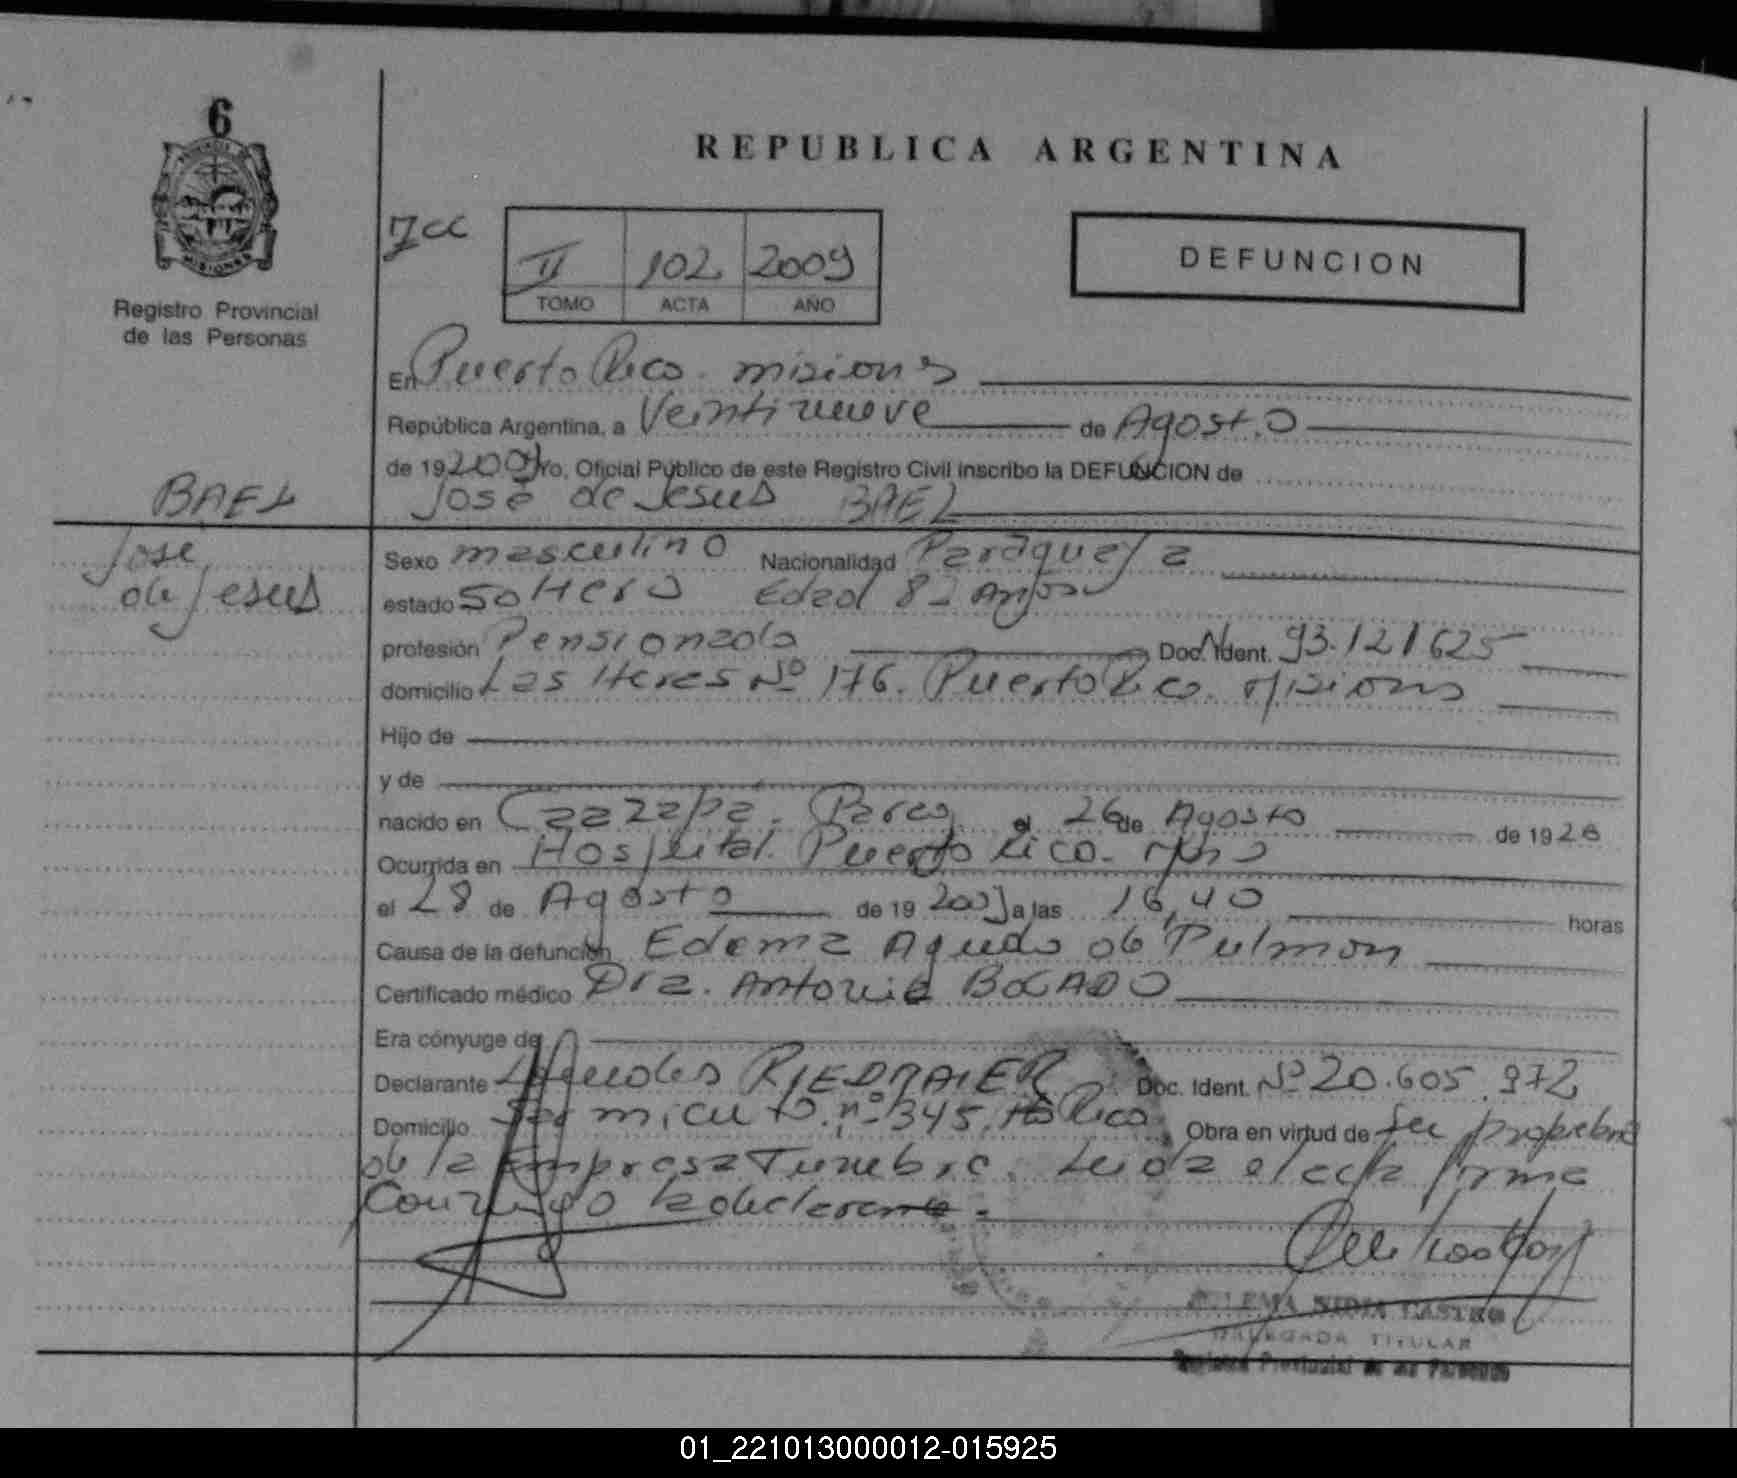 6
MISIONES
Registro Provincial
de las Personas
REPUBLICA ARGENTINA
7cc
II 102 2009
TOMO ACTA AÑO
DEFUNCION
En Puerto Rico. misiones
República Argentina, a Veintinueve de Agosto
de 19 2009 Yo, Oficial Público de este Registro Civil inscribo la DEFUNCION de
José de Jesus BAEZ
BAEZ
José
de Jesus
Sexo masculino Nacionalidad Paraguaya
estado Soltero Edad 82 Años
profesión Pensionado Doc. Ident. Nº 93.121625
domicilio Las Heras Nº 176. Puerto Rico. Misiones
Hijo de
y de
nacido en Caazapá. Parag el 26 de Agosto de 1926
Ocurrida en Hospital. Puerto Rico. Mnes
el 28 de Agosto de 19 2009 a las 16,40 horas
Causa de la defunción Edema Agudo de Pulmon
Certificado médico Dra. Antonia BOGADO
Era cónyuge de
Declarante Lourdes RIEDMAIER Doc. Ident. Nº 20.605.972
Domicilio nº 345. Pto Rico Obra en virtud de ser propietaria
de la Empresa Funebre. Leida el acta firma
Conmigo la declarante.
ZULEMA NIDIA CASTRO
DELEGADA TITULAR
Registro Provincial de las Personas
01_221013000012-015925